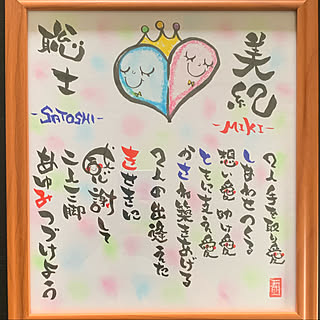 美紀
-MIKI-
聡士
-SATOSHI-
2人手を取り愛
しあわせつくる
想い愛 助け愛
ともに支え愛
かさね築きあげる
2人の出逢えた
きせきに
感謝して
二人三脚
あゆみつづけよう